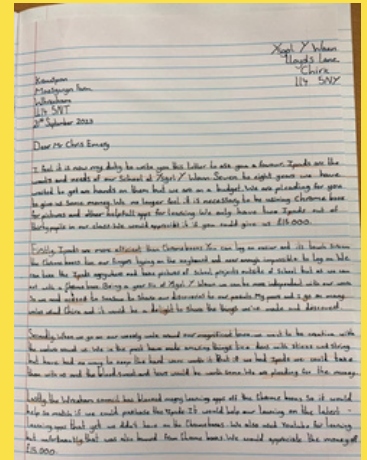 Ysgol Y Waun
Lloyds Lane
Chirk
LL14 5NY
Wrexham
LL14 5NT
21st September 2023
Dear Mr Chris Emery
I feel it is now my duty to write you this letter to ask you a favour. Ipads are the
wants and needs of our School at Ysgol Y Waun. Seven to eight years we have
waited to get our hands on them but we are on a budget. We are pleading for you
to give us some money. We no longer feel it is necessary to be using Chrome books
for pictures and other helpfull apps for learning. We only have two Ipads out of
thirty pupils in our class. We would appreciate it if you could give us £15.000.
Firstly, Ipads are more efficient than Chrome books. You can log on easier and its touch screen
the Chrome books live our fingers typing on the keyboard and near enough impossible to log on. We
can take the Ipads anywhere and take pictures of school projects outside of School but we can
not with a Chrome book. Being a year six at Ysgol Y Waun we can be more independent with our work
to share our discoveries to our parents. My peers and I go on many
walks around Chirk and it would be a delight to share the things we've made and discovered.
Secondly, when we go on our weekly walk around our magnificent town we want to be creative with
the nature around us. We in the past have made amazing things like dens with sticks and string
but have had no way to save the hard work made in it. But if we had Ipads we could take
them with us and the blood sweat and tears would be worth some. We are pleading for the money.
Lastly, the Wrexham council has blocked many learning apps off the Chrome books so it would
help so much if we could purchase the Ipads. It would help our learning on the latest
learning apps that yet we didn't have on the Chrome books. We also used Youtube for learning
but unfortunately that was also banned from Chrome books. We would appreciate the money of
£15.000.